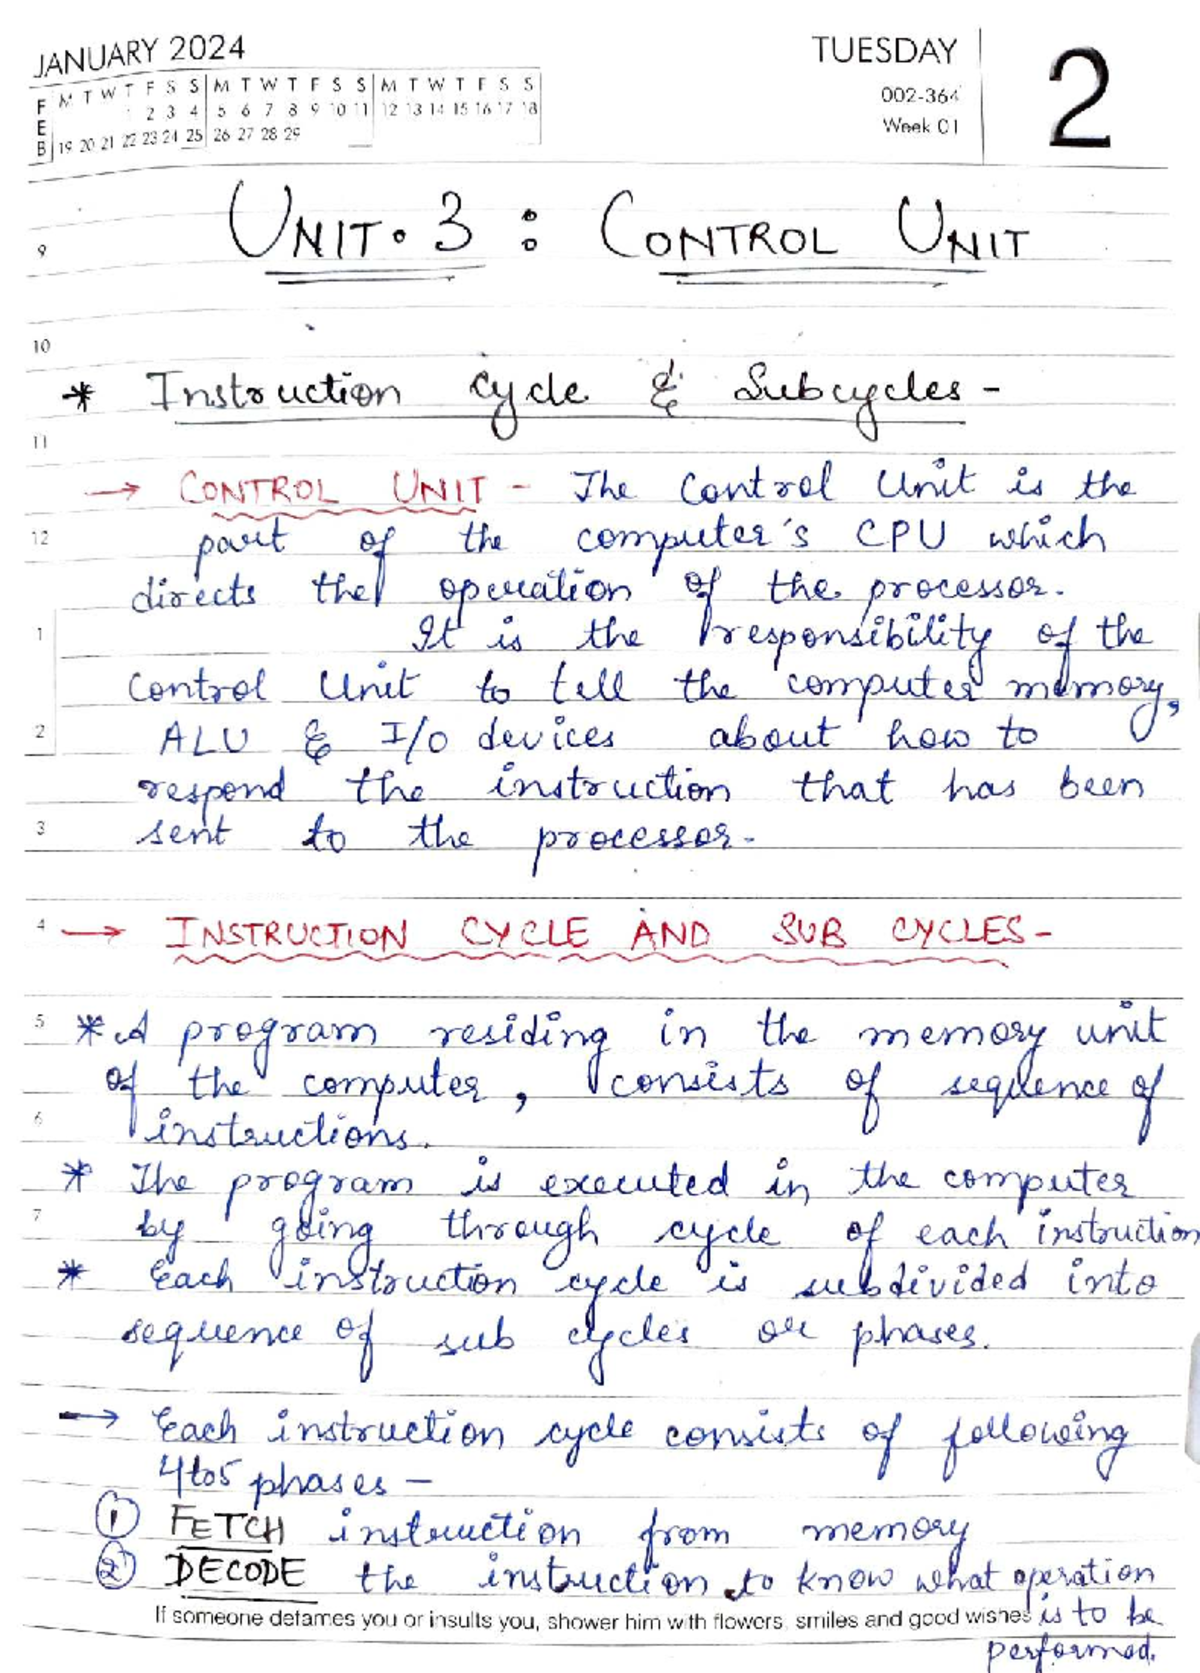 JANUARY 2024
TUESDAY
2
002-364
Week 01
FEB
M T W T F S S M T W T F S S M T W T F S S
1 2 3 4 5 6 7 8 9 10 11 12 13 14 15 16 17 18
19 20 21 22 23 24 25 26 27 28 29
UNIT. 3 : CONTROL UNIT
9
10
* Instruction cycle & Subcycles -
11
→ CONTROL UNIT - The Control Unit is the
12 part of the computer's CPU which
directs the operation of the processor.
1 It is the responsibility of the
Control Unit to tell the computer memory,
2 ALU & I/O devices about how to
respond the instruction that has been
3 sent to the processor.
4 → INSTRUCTION CYCLE AND SUB CYCLES-
5 * A program residing in the memory unit
of the computer, consists of sequence of
6 instructions.
* The program is executed in the computer
7 by going through cycle of each instruction
* Each instruction cycle is subdivided into
sequence of sub cycles or phases.
→ Each instruction cycle consists of following
4 to 5 phases -
① FETCH instruction from memory
② DECODE the instruction to know what operation
If someone defames you or insults you, shower him with flowers, smiles and good wishes is to be
performed.